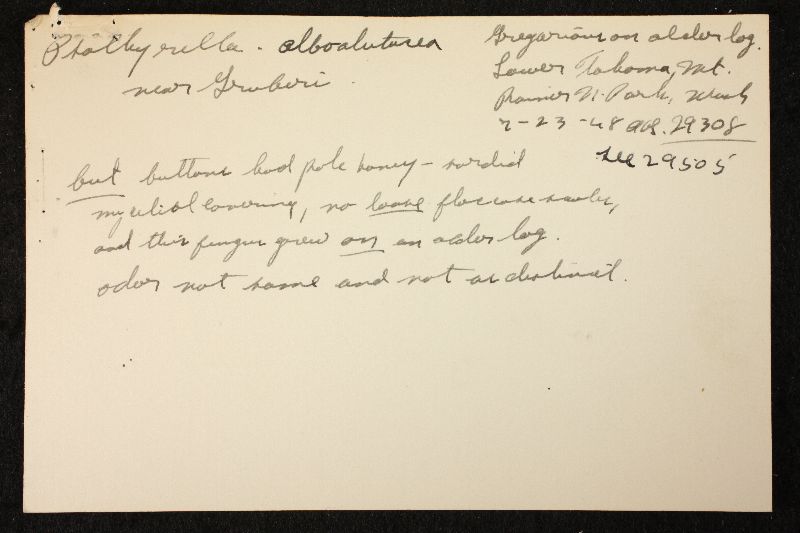 Psathyrella - alboalutacea
near Gruberi
Gregarious on alder log.
Lower Tahoma, Mt.
Rainier N. Park, Wash
7-23-48 29308
see 29505
but buttons had pale honey - sordid
mycelial covering, no loose floccose scales,
and this fungus grew on an alder log.
odor not same and not as distinct.